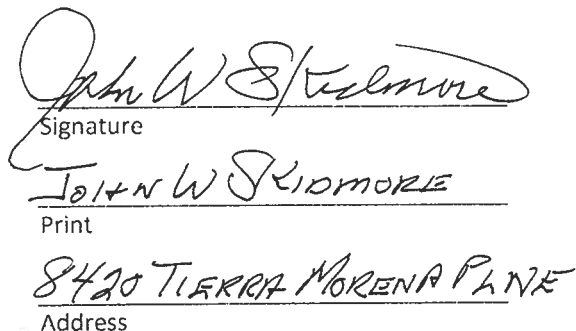 John W Skidmore
Signature
JOHN W SKIDMORE
Print
8420 TIERRA MORENA PL NE
Address